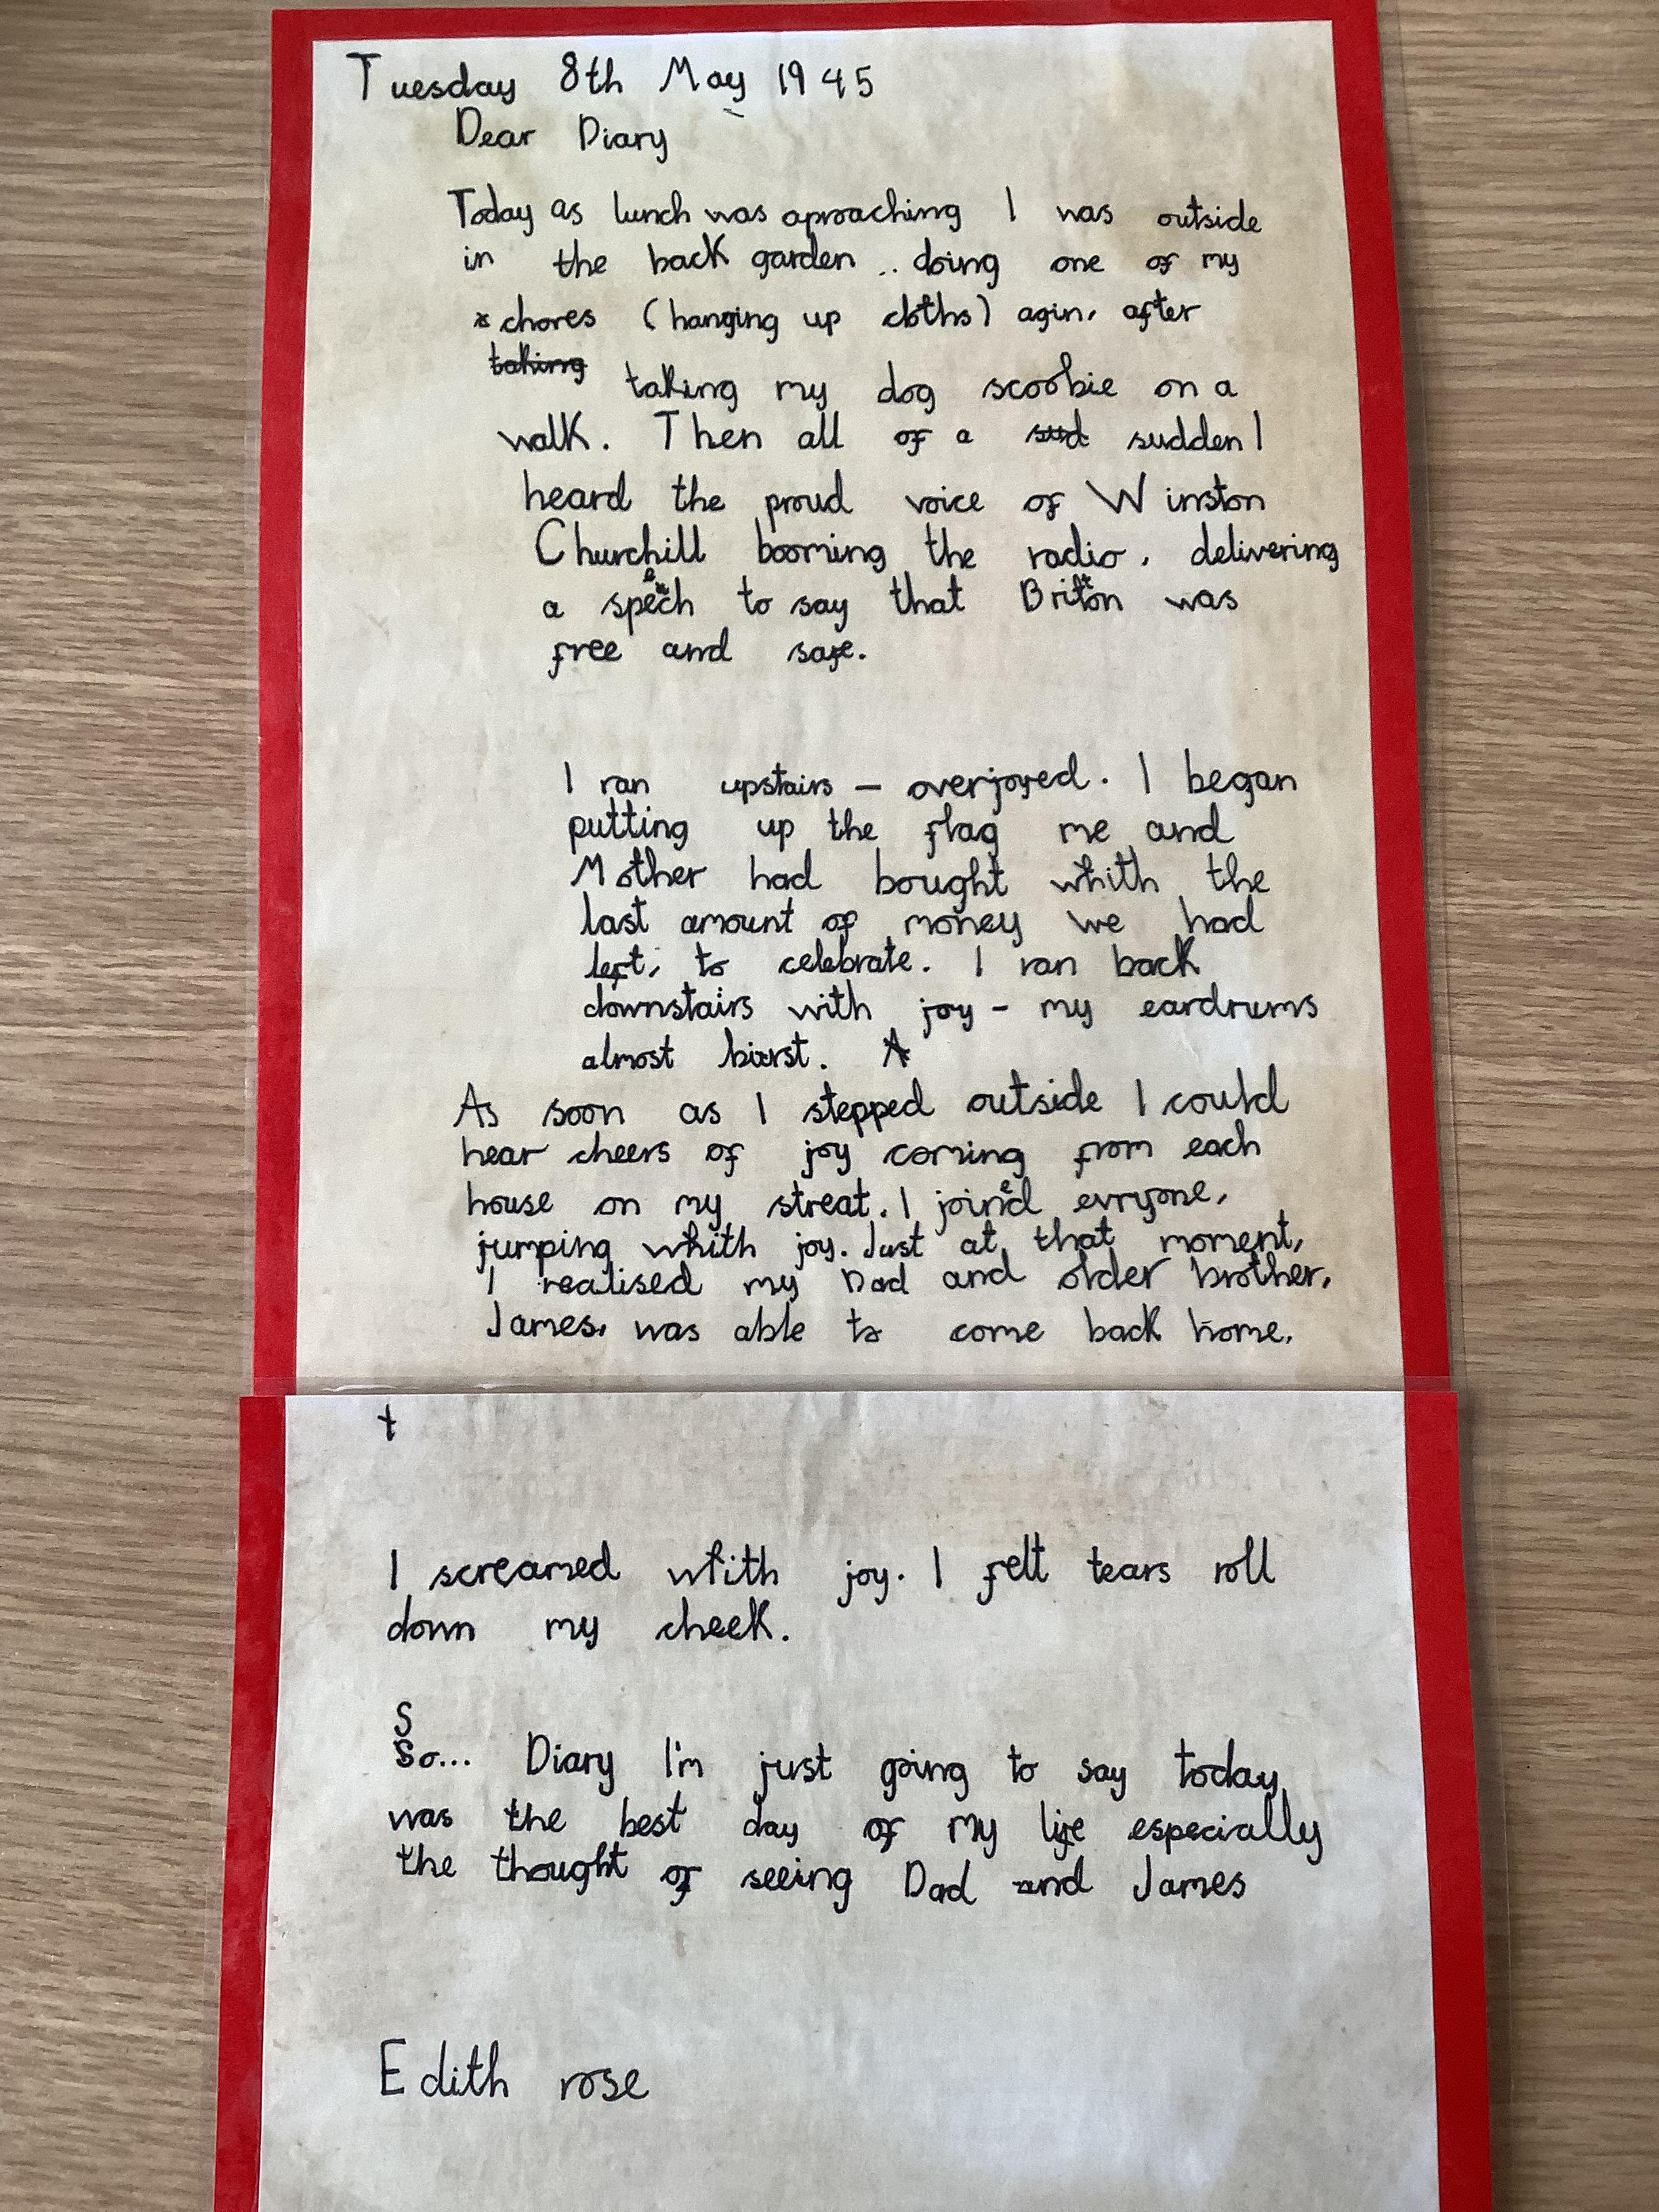 Tuesday 8th May 1945
Dear Diary
Today as lunch was aproaching I was outside
in the back garden .. doing one of my
chores (hanging up cloths) agin, after
taking taking my dog scoobie on a
walk. Then all of a sud sudden I
heard the proud voice of Winston
Churchill booming the radio, delivering
a speech to say that Briton was
free and safe.
I ran upstairs – overjoyed. I began
putting up the flag me and
Mother had bought whith the
last amount of money we had
left, to celebrate. I ran back
downstairs with joy - my eardrums
almost burst. A
As soon as I stepped outside I could
hear cheers of joy coming from each
house on my streat. I joined evryone,
jumping whith joy. Just at that moment,
I realised my Dad and older brother,
James, was able to come back home.
t
I screamed whith joy. I felt tears roll
down my cheek.
S
So... Diary I'm just going to say today
was the best day of my life especially
the thought of seeing Dad and James
Edith rose